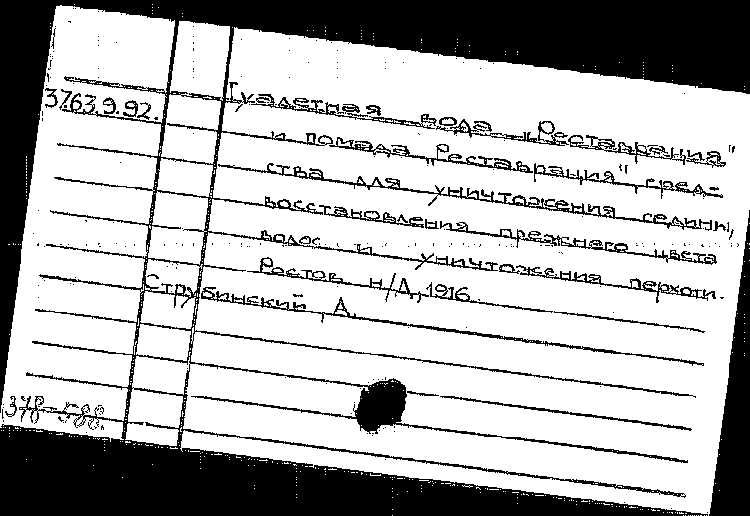 Туалетная вода „Реставрация"
3763.9.92.
и помада „Реставрация", сред-
ства для уничтожения седины,
восстановления прежнего цвета
волос и уничтожения перхоти.
Ростов н/Д, 1916
Струбинский, А.
378-588.